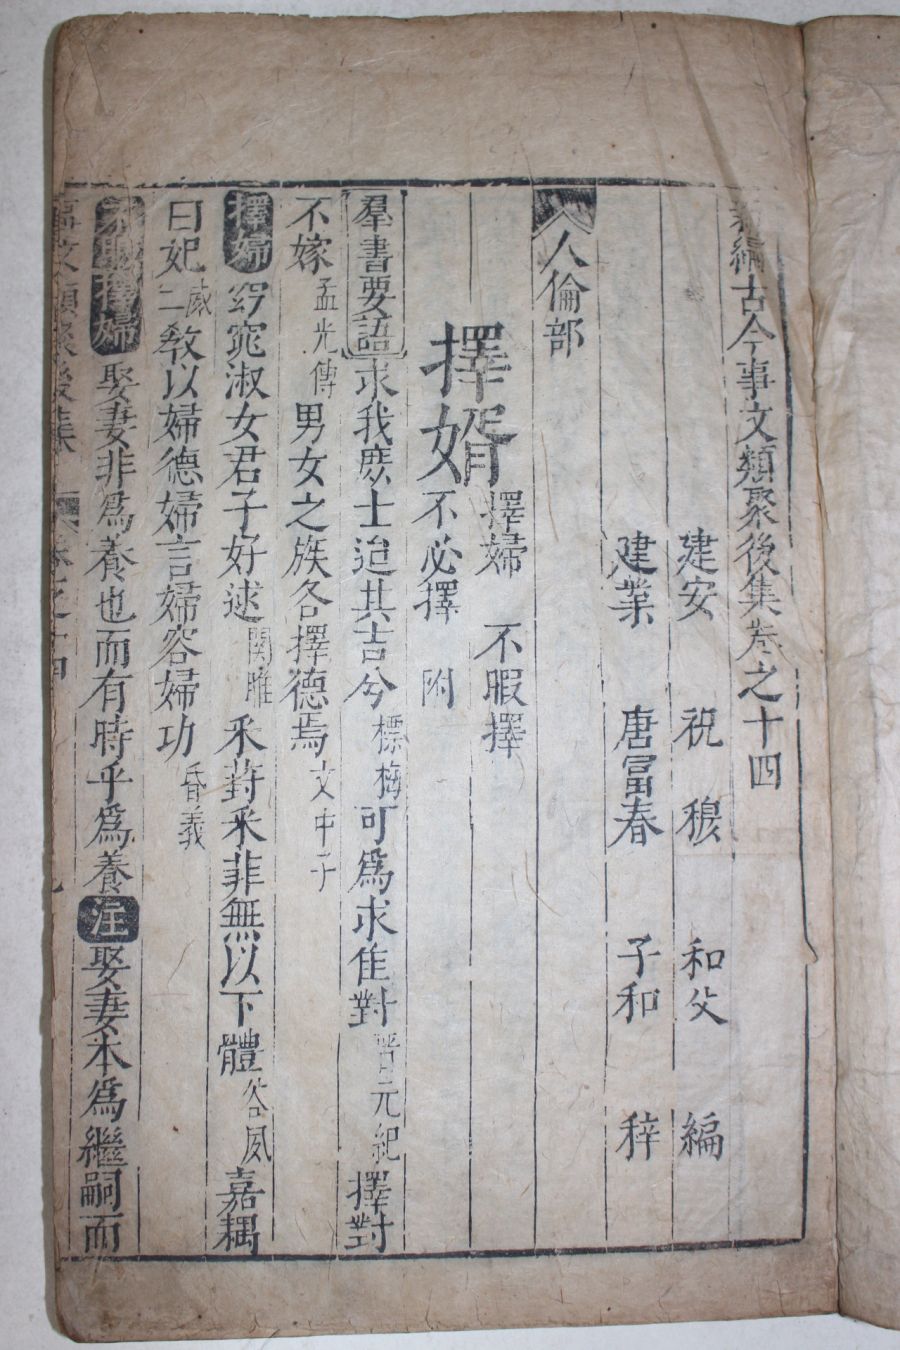 新編古今事文類聚後集卷之十四
建安 祝穆 和父 編
建業 唐富春 子和 梓
人倫部
擇婿 擇婦 不暇擇
不必擇 附
羣書要語 求我庶士迨其吉兮 標梅 可爲求隹對 晋元紀 擇對
不嫁 孟光傳 男女之族各擇德焉 文中子
擇婦 窈窕淑女君子好逑 関雎 采葑采菲無以下體 谷風 嘉耦
曰妃 二 教以婦德婦言婦容婦功 昏義
不暇擇婦 娶妻非爲養也而有時乎爲養 注 娶妻本爲繼嗣而
事文類聚後集 卷之十四